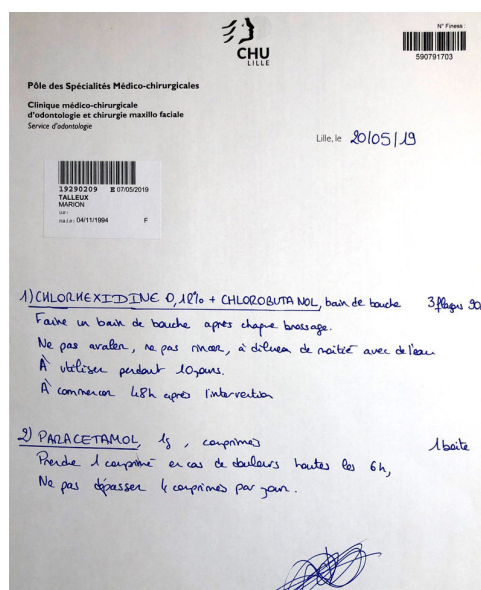 CHU
LILLE
N° Finess :
590791703
Pôle des Spécialités Médico-chirurgicales
Clinique médico-chirurgicale
d'odontologie et chirurgie maxillo faciale
Service d'odontologie
Lille, le 20/05/19
19290209 E 07/05/2019
TALLEUX
MARION
04/11/1994 F
1) CHLORHEXIDINE 0,12% + CHLOROBUTANOL, bain de bouche 3 flacons 90
Faire un bain de bouche après chaque brossage.
Ne pas avaler, ne pas rincer, à diluer de moitié avec de l'eau
À utiliser pendant 10 jours.
À commencer 48h après l'intervention
2) PARACETAMOL, 1g, comprimés 1 boite
Prendre 1 comprimé en cas de douleurs toutes les 6h,
Ne pas dépasser 4 comprimés par jour.